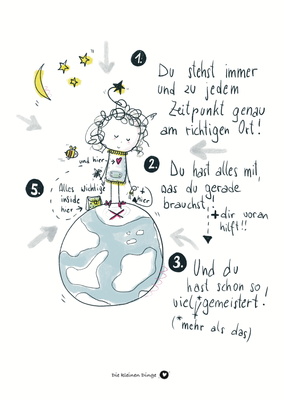 1.
Du stehst immer
und zu jedem
Zeitpunkt genau
am richtigen Ort!
und hier→
2.
Du hast alles mit,
was du gerade
brauchst,
+ dir voran
hilft!!
5.
Alles wichtige
inside
hier→
+
hier
3.
Und du
hast schon so
viel* gemeistert!
(*mehr als das)
die kleinen Dinge